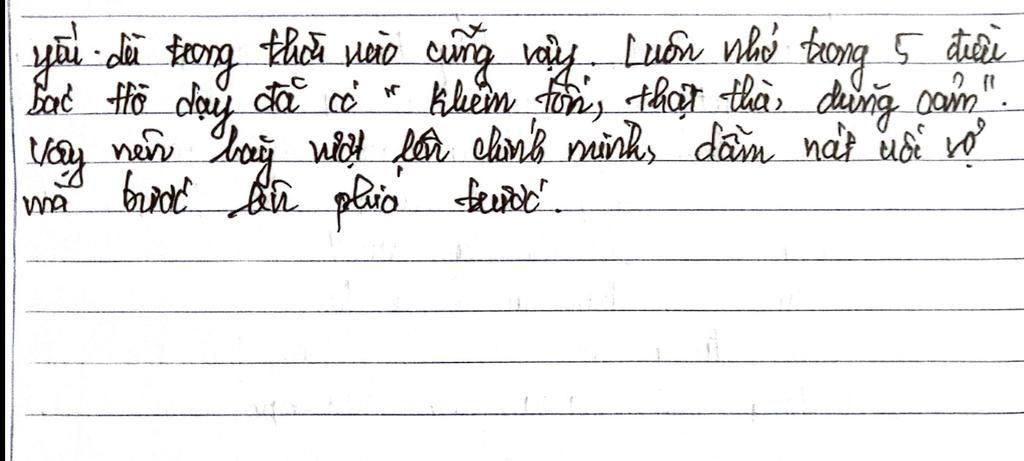 yếu dù trong thời nào cũng vậy. Luôn nhớ trong 5 điều
bác Hồ dạy đã có " Khiêm tốn, thật thà, dũng cảm".
Vậy nên hãy vượt lên chính mình, dẫm nát nỗi sợ
mà bước lên phía trước.